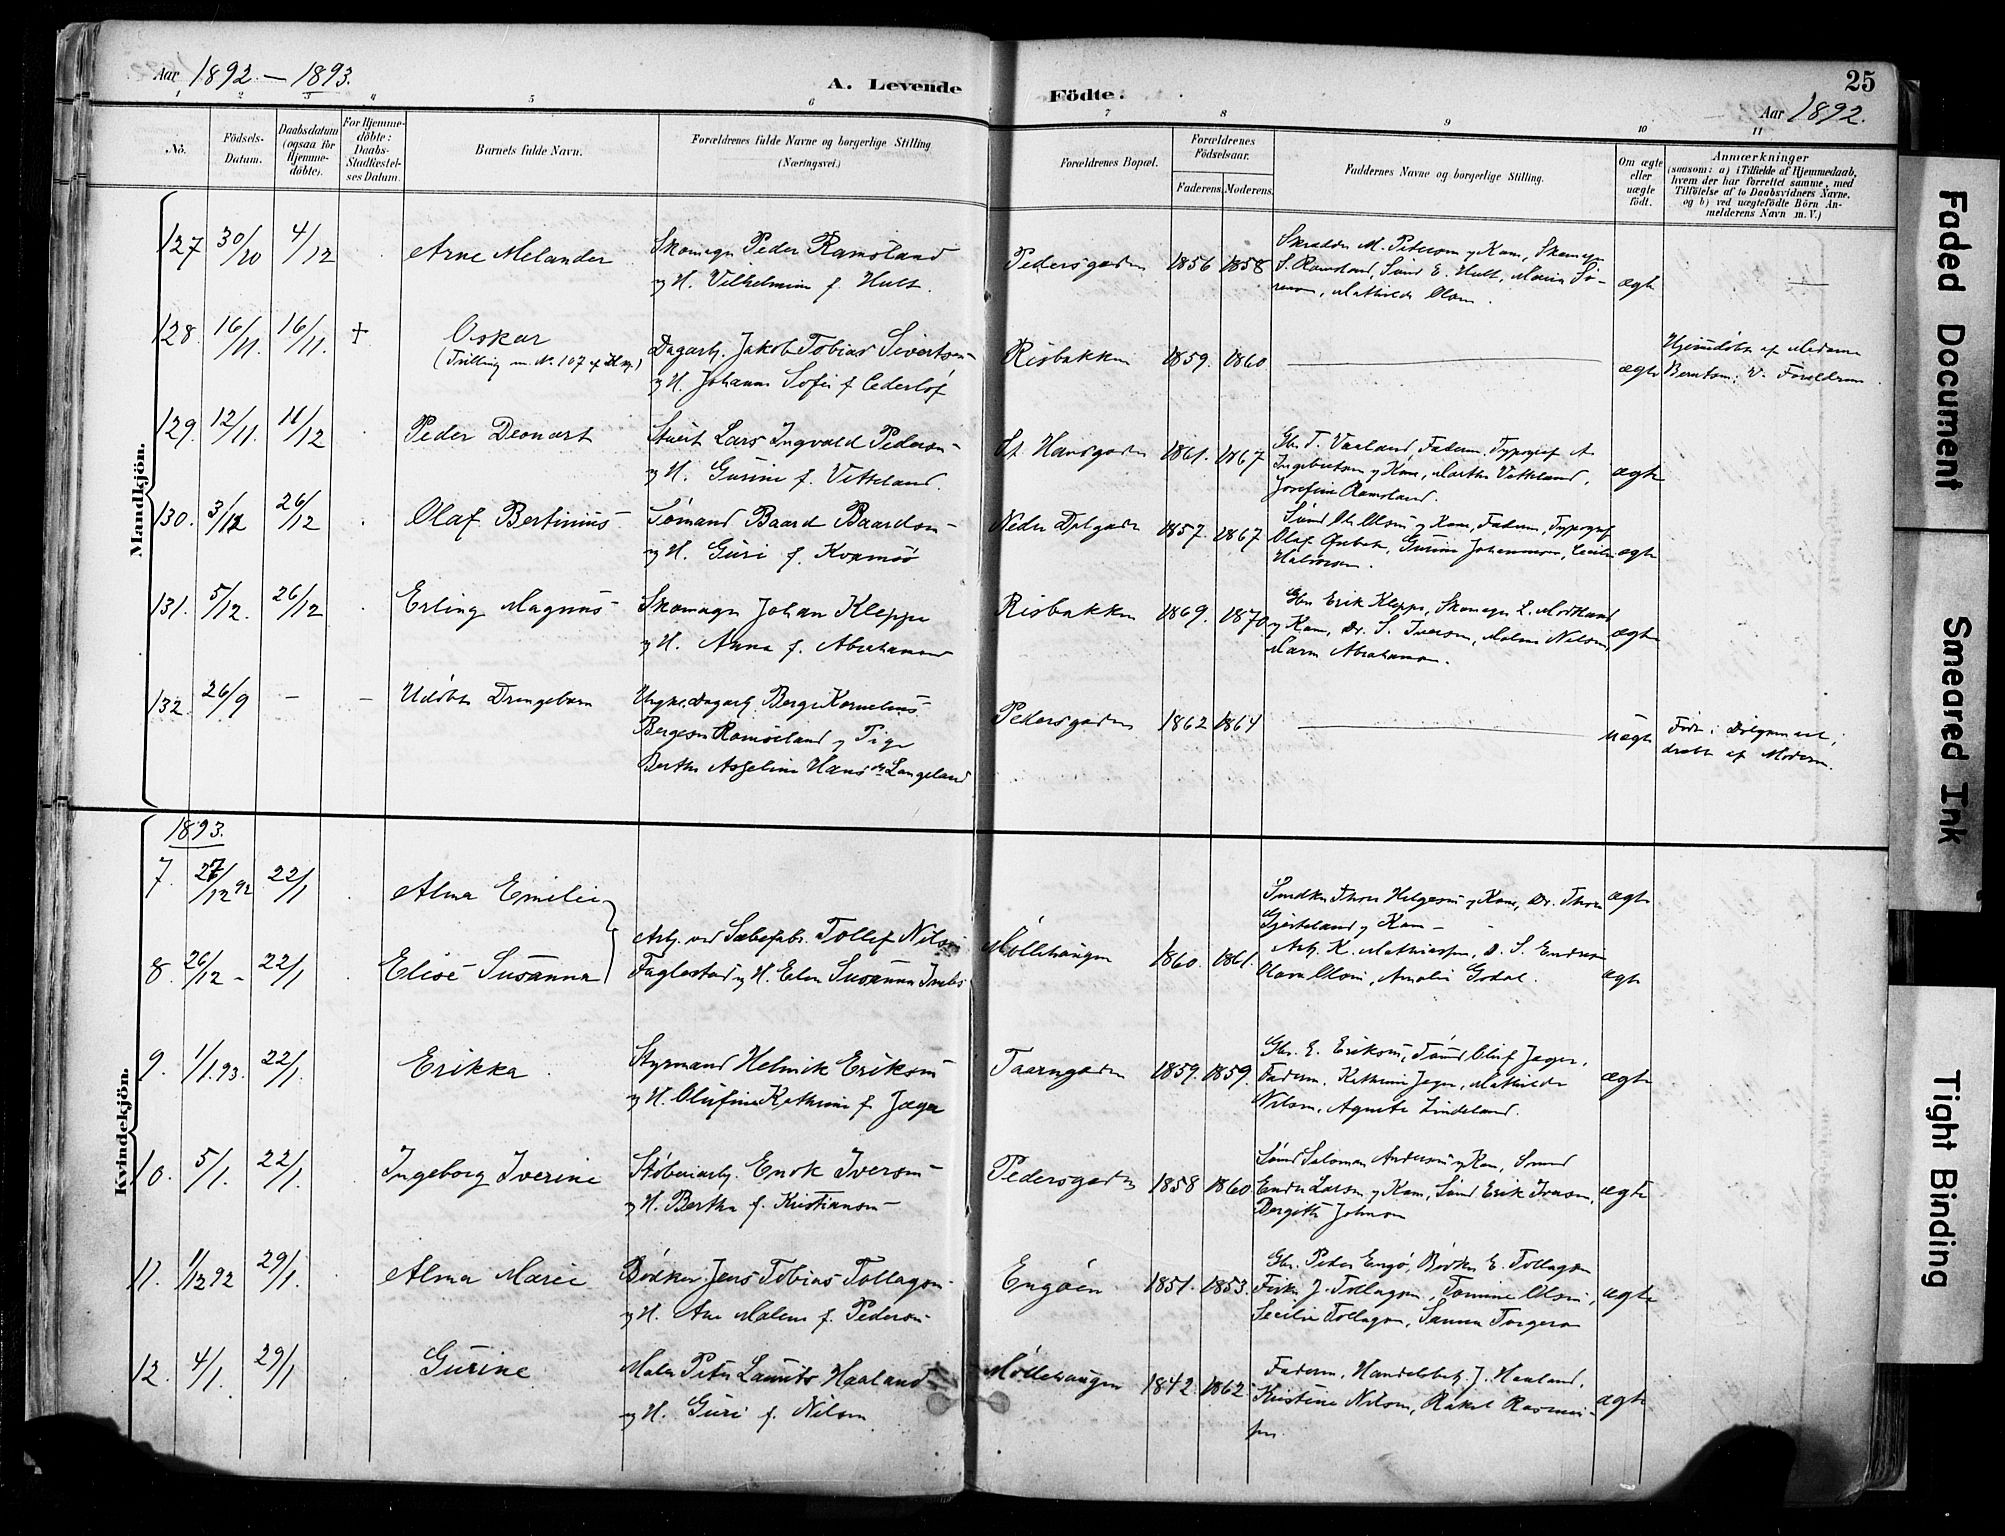 Aar 1892 – 1893.
A. Levende
Födte.
25
Aar 1892.
1 2 3 4 5 6 7 8 9 10 11
No.
Födsels-
Datum.
Daabsdatum
(ogsaa for
Hjemme-
döbte).
For Hjemme-
döbte:
Daabs-
Stadfæstel-
ses Datum.
Barnets fulde Navn.
Forældrenes fulde Navne og borgerlige Stilling
(Næringsvei.)
Forældrenes Bopæl.
Forældrenes
Födselsaar.
Faderens. Moderens.
Faddernes Navne og borgerlige Stilling.
Om ægte
eller
uægte
födt.
Anmærkninger
(saasom: a) i Tilfælde af Hjemmedaab,
hvem der har forrettet samme, med
Tilföielse af to Daabsvidners Navne.
og b) ved uægtefödte Börn An-
melderens Navn m. V.)
Mandkjön.
127 30/10 4/12 Arne Melander
Skomagr Peder Ramsland
og H. Vilhelmine f. Hult.
Pedersgaden 1856 1858
Skrædder M. Petersen og Kone, Skomagr
S. Ramsland, Sömd E. Hult, Maria Sö-
rensen, Mathilde Olsen.
ægte
128. 16/11. 16/11. + Oskar
(Tvilling m. No. 107 af Kvkj.)
Dagarb. Jakob Tobias Sivertsen
og H. Johanne Sofie f. Cederlöf
Risbakken 1859. 1860
ægte
Hjemdöbt af Madame
Berntsen; V. Forældrene.
129. 12/11. 11/12 Peder Deonart
Stuert Lars Ingvald Pedersen
og H. Gurine f. Vetteland.
St. Hansgaden 1861. 1867
Gbr. T. Vaaland, Faderen, Typograf A
Ingebretsen og Kone, Marthe Vetteland,
Josefine Ramsland.
ægte
130. 3/12 26/12 Olaf Bertinius
Sömand Baard Baardsen
og H. Guri f. Kvamsö
Nedre Dalgaden 1857. 1867
Sömd Ole Olsen og Kone, Faderen, Typograf
Olaf, Gurine Johannesen, Cecilie
Halvorsen.
ægte
131. 5/12. 26/12 Erling Magnus
Skomagr Johan Kleppe
og H. Anna f. Abrahamsen
Risbakken 1869. 1870
Gbr Erik Kleppe, Skomagr L. Motland
og Kone, Dr. S. Iversen, Malene Nilsen,
Maren Abrahamsen.
ægte
132. 26/9 – – Udöbt Drengebarn
Ungk. Dagarb. Berge Kornelius
Bergesen Ramsland og Pige
Berthe Asseline Hansdr Langeland
Pedersgaden 1862 1864
uægte
Född i Dölgsmaal;
dræbt af Moderen.
Kvindekjön.
1893.
7. 27/12 92 22/1 Alma Emilie
8. 26/12 – 22/1 Elise Susanna
Arb. ved Sæbefabr. Tollef Nilsen
Fuglestad og H. Elen Susanna
Möllehaugen 1860. 1861.
Smedkr Thore Helgesen og Kone, Dr. Thore
Gjesteland og Kone –
Arb. K. Mathiassen, D. S. Endresen
Olava Olsen, Amalie Godal.
ægte
ægte
9. 1/1.93. 22/1. Erikka
Styrmand Helmik Eriksen
og H. Olufine Kathrine f. Jæger
Taarngaden 1859. 1859.
Gbr. E. Eriksen, Tömd Oluf Jæger,
Faderen, Kathrine Jæger, Mathilde
Nilsen, Agnete Lindeland.
ægte
10. 5/1. 22/1. Ingeborg Iverine
Stöberiarb. Enok Iversen
og H. Bertha f. Kristiansen
Pedersgaden 1858 1860
Sömd Salomon Andersen og Kone, Smed
Endre Larsen og Kone, Sömd Erik Iversen,
Bergitte Johnsen
ægte
11. 1/12 92 29/1. Alma Marie
Bödker Jens Tobias Tollagsen
og H. Ane Malene f. Pedersen
Engöen 1851. 1853.
Gbr. Peder Engö, Bödkr E. Tollagsen
Fisker J. Tollagsen, Tomine Olsen,
Secilie Tollagsen, Sanna Torgersen
ægte
12. 4/1. 29/1 Gurine
Maler Peter Laurits Haaland
og H. Guri f. Nilsen
Möllehaugen 1842. 1862
Faderen, Handelsbet. J. Haaland,
Kristine Nilsen, Rakel Rasmus-
sen.
ægte
Faded Document
Smeared Ink
Tight Binding